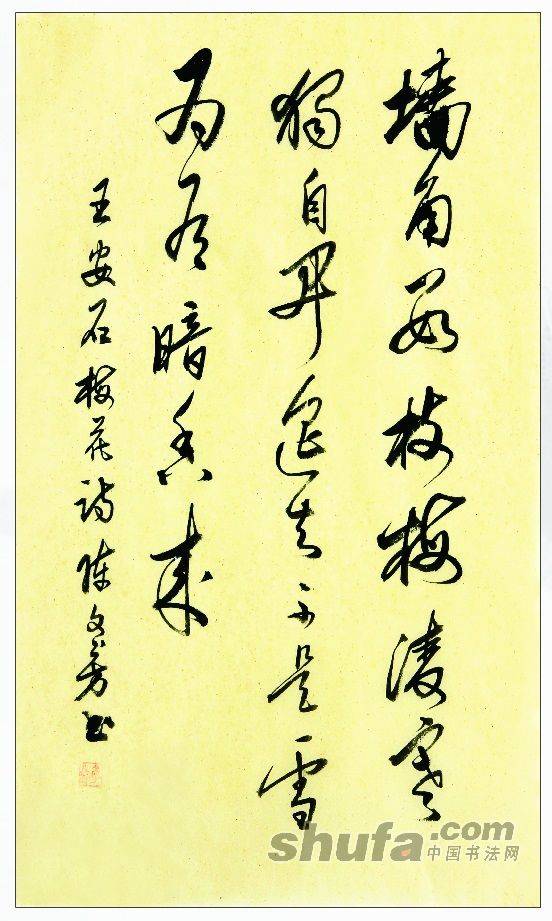 墙角数枝梅凌寒
独自开遥知不是雪
为有暗香来
王安石梅花诗陈文芳书
shufa.com
中国书法网